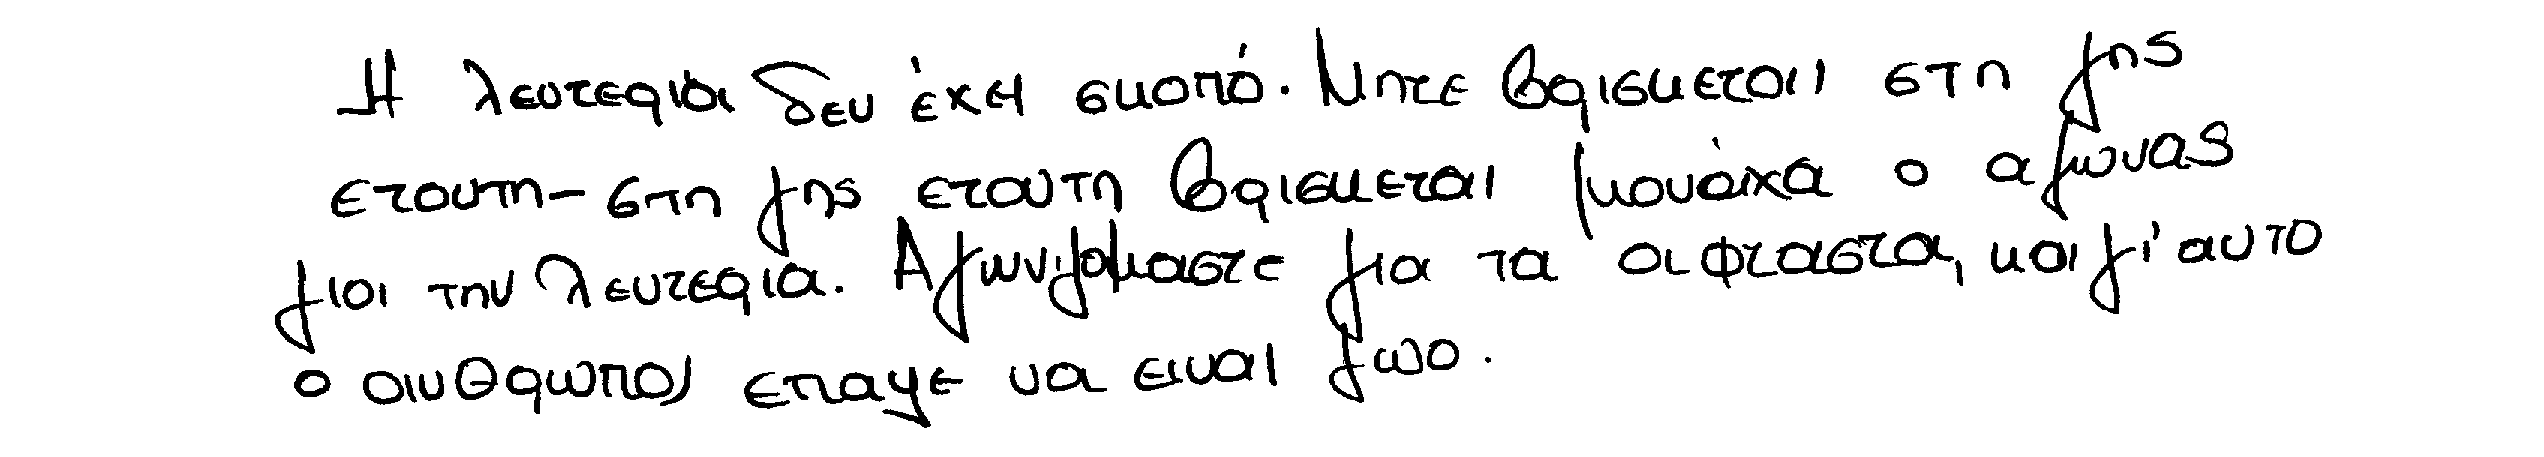 Η λευτεριά δεν έχει σκοπό. Μητε βρισκεται στη γης
ετουτη - στη γης ετουτη βρισκεται μονάχα ο αγωνας
για την λευτερια. Αγωνιζομαστε για τα αφταστα, και γι' αυτο
ο ανθρωπος επαψε να ειναι ζωο.